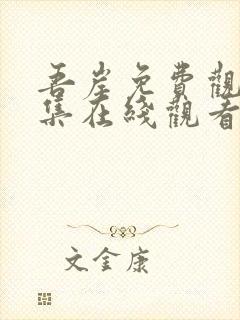 吾崖免費觀
集在綫觀看
文金康